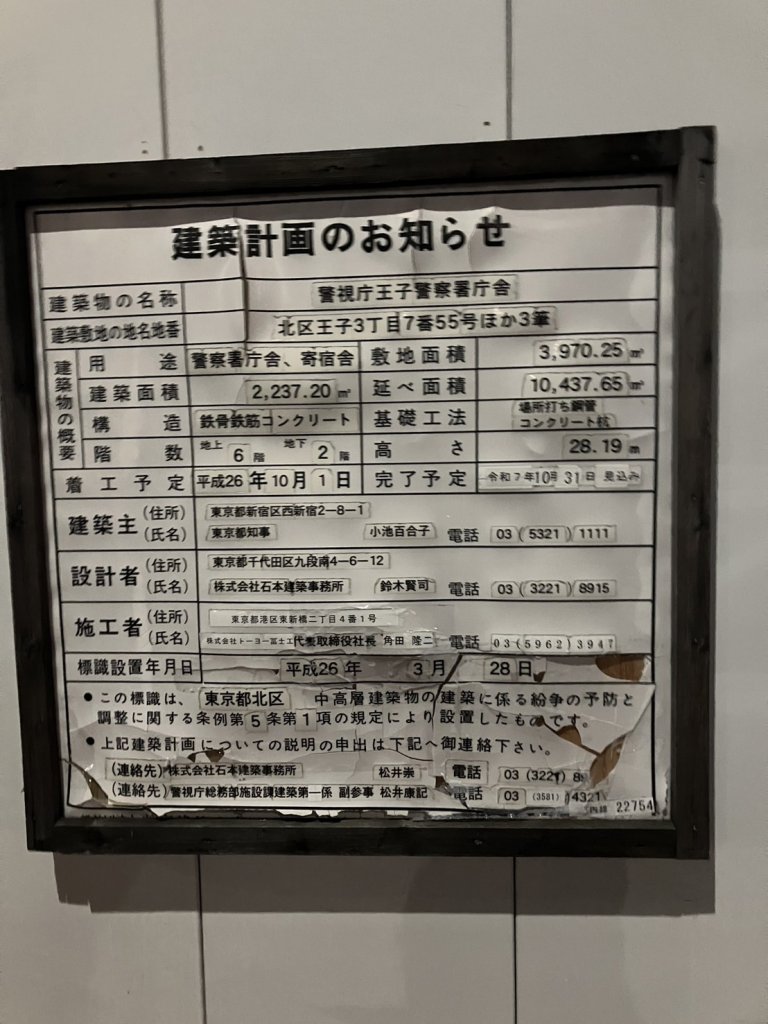 建築計画のお知らせ
建築物の名称 警視庁王子警察署庁舎
建築敷地の地名地番 北区王子3丁目7番55号ほか3筆
建築物の概要
用途 警察署庁舎、寄宿舎 敷地面積 3,970.25㎡
建築面積 2,237.20㎡ 延べ面積 10,437.65㎡
構造 鉄骨鉄筋コンクリート 基礎工法 場所打ち鋼管コンクリート杭
階数 地上6階 地下2階 高さ 28.19m
着工予定 平成26年10月1日 完了予定 令和7年10月31日見込み
建築主 (住所) 東京都新宿区西新宿2−8−1
(氏名) 東京都知事 小池百合子 電話 03(5321)1111
設計者 (住所) 東京都千代田区九段南4−6−12
(氏名) 株式会社石本建築事務所 鈴木賢司 電話 03(3221)8915
施工者 (住所) 東京都港区東新橋二丁目4番1号
(氏名) 株式会社トーヨー冨士工 代表取締役社長 角田 隆二 電話 03(5962)3947
標識設置年月日 平成26年3月28日
●この標識は、東京都北区 中高層建築物の建築に係る紛争の予防と
調整に関する条例第5条第1項の規定により設置したものです。
●上記建築計画についての説明の申出は下記へ御連絡下さい。
(連絡先)株式会社石本建築事務所 松井崇 電話 03(3221)8
(連絡先)警視庁総務部施設課建築第一係 副参事 松井康記 電話 03(3581)4321
内線 22754